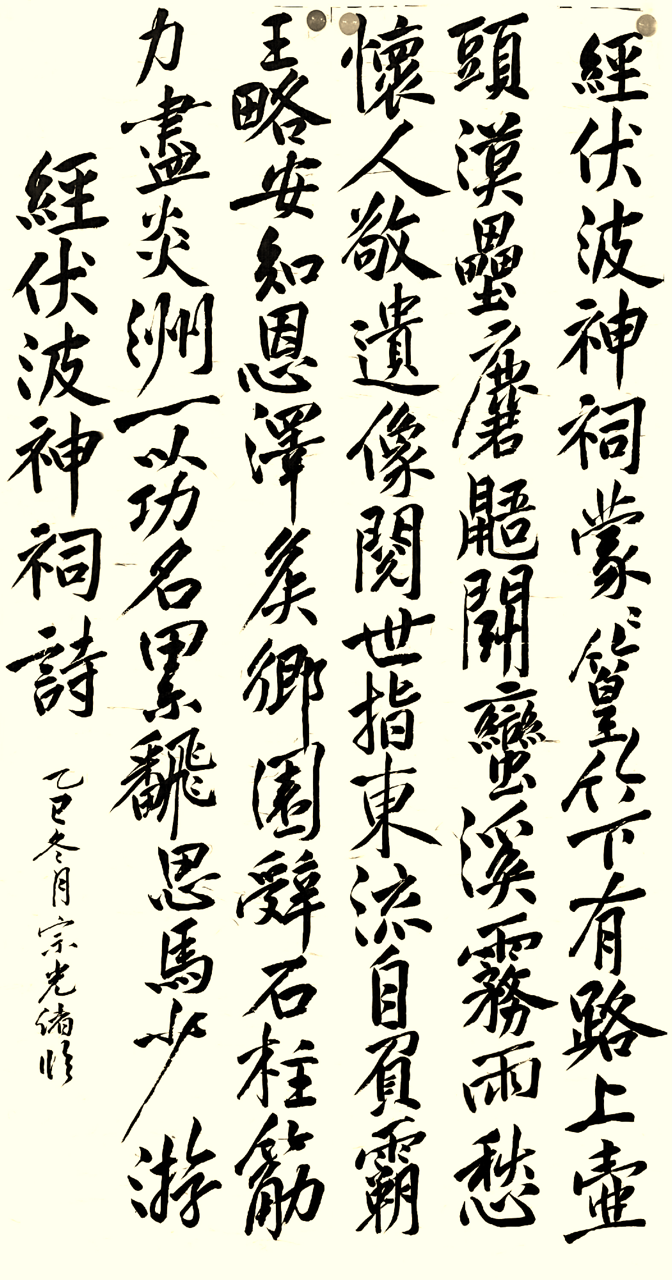 經伏波神祠蒙〻篁竹下有路上壺
頭漢壘麏鼯鬭蠻溪霧雨愁
懷人敬遺像閱世指東流自負霸
王略安知恩澤矦鄉園辭石柱筋
力盡炎洲一以功名累飜思馬少游
經伏波神祠詩
乙巳冬月宗光緒臨